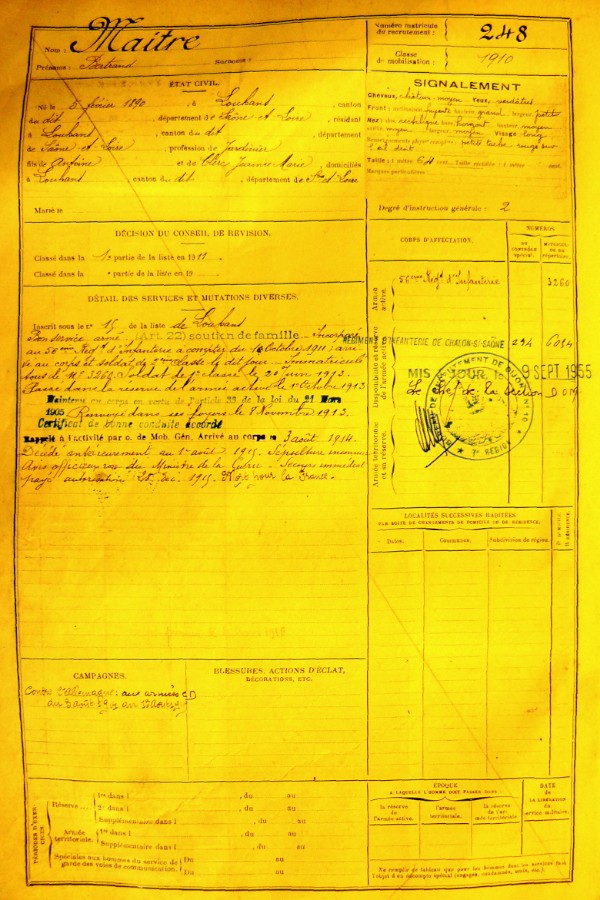 Nom : Maitre
Prénoms : Bertrand Surnoms :
Numéro matricule du recrutement : 248
Classe de mobilisation : 1910
ÉTAT CIVIL.
Né le 5 février 1890, à Louhans, canton
du dit, département de Saône-et-Loire, résidant
à Louhans, canton du dit, département
de Saône et Loire, profession de Jardinier
fils de Antoine et de Clerc Jeanne Marie, domiciliés
à Louhans canton du dit, département de
Marié le
SIGNALEMENT
Cheveux châtain moyen Yeux
Front :
Nez : dos rectiligne base
Visage long
petite tache rouge sur
l'œil droit
Taille : 1 mètre 64 cent. Taille rectifiée : 1 mètre cent.
Marques particulières :
Degré d'instruction générale : 2
DÉCISION DU CONSEIL DE RÉVISION.
Classé dans la 1e partie de la liste en 1911
Classé dans la partie de la liste en 19
DÉTAIL DES SERVICES ET MUTATIONS DIVERSES.
Inscrit sous le n° 15 de la liste de Louhans
Bon service armé (Art. 22) soutien de famille Incorporé
au 56ème Régt d'Infanterie à compter du Octobre 1911, arri-
vé au corps et soldat de 2ème classe le dit jour. Immatriculé
sous le N° Soldat de 1e classe le 20 Juin 1913.
Passé dans la réserve de l'armée active le 1er Octobre 1913
Maintenu au corps en vertu de l'article 33 de la loi du 21 Mars
1905 Renvoyé dans ses foyers le 8 Novembre 1913.
Certificat de bonne conduite accordé
Rappelé à l'activité par o. de Mob. Gén. Arrivé au corps le 3 août 1914.
Décédé antérieurement au 1er août 1915. Sépulture inconnue
Avis officiel du Ministre de la Guerre. Secours immédiat
payé autorisation déc. 1915. Mort pour la France.
CORPS D'AFFECTATION.
NUMÉROS
au contrôle spécial.
au répertoire.
Armée active.
56ème Régt d'Infanterie 3260
Disponibilité et réserve de l'armée active.
RÉGIMENT D'INFANTERIE DE CHALON-S/-SAÔNE 234 6054
MIS À JOUR, le 9 SEPT 1955
Le Chef de la Section
RECRUTEMENT DE DIJON
7e RÉGION
Armée territoriale et sa réserve.
LOCALITÉS SUCCESSIVES HABITÉES
PAR SUITE DE CHANGEMENTS DE DOMICILE OU DE RÉSIDENCE.
Dates. Communes. Subdivision de région. D. domicile. R. résidence.
CAMPAGNES.
Contre l'Allemagne : aux armées CD
du 3 août 1914 au 1er Août 1915
BLESSURES, ACTIONS D'ÉCLAT,
DÉCORATIONS, ETC.
PÉRIODES D'EXERCICES
Réserve 1re dans l , du au
2e dans l , du au
Supplémentaire dans l , du au
Armée territoriale. 1re dans l , du au
Supplémentaire dans l , du au
Spéciales aux hommes du service de garde des voies de communication. Du au
Du au
ÉPOQUE
À LAQUELLE L'HOMME DOIT PASSER DANS :
la réserve de l'armée active.
l'armée territoriale.
la réserve de l'armée territoriale.
DATE
de
LA LIBÉRATION
du service militaire.